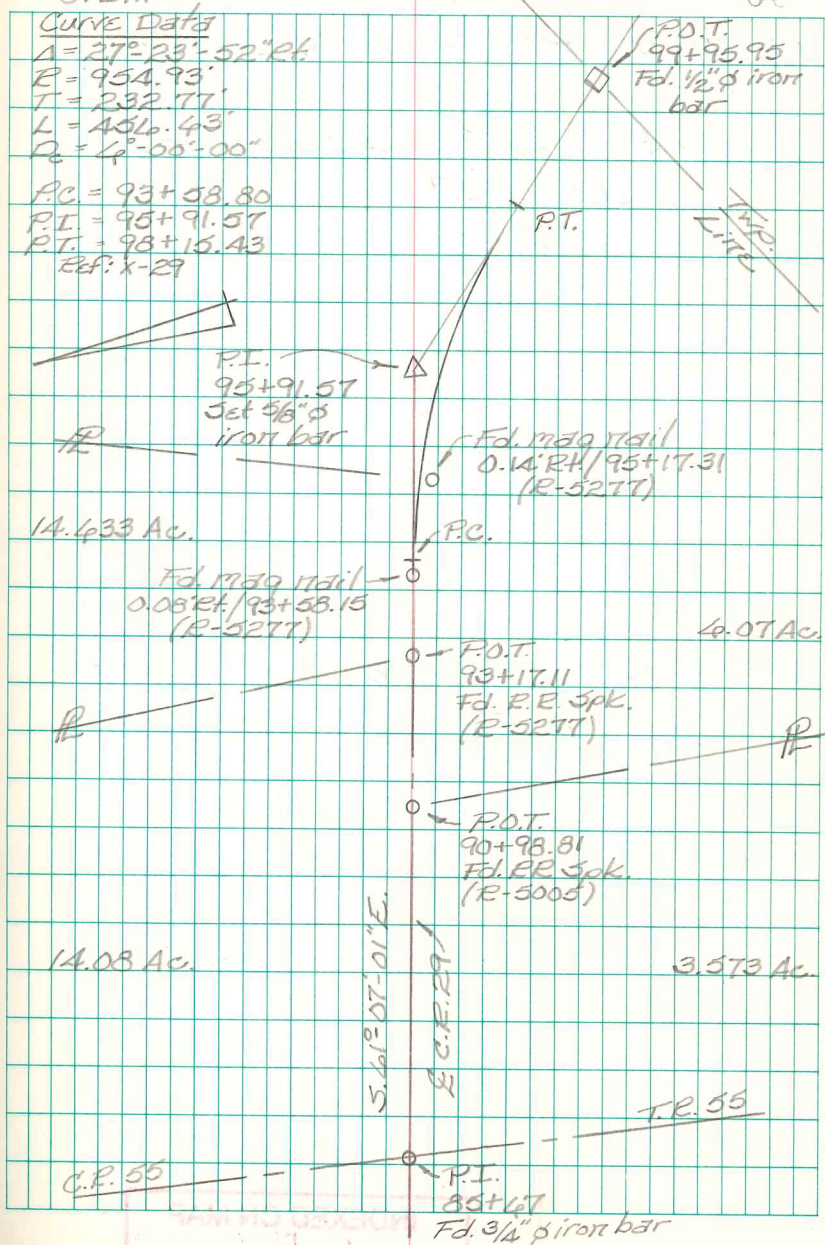 Curve Data
Δ = 27°-23'-52" Rt.
R = 954.93'
T = 232.77'
L = 456.63'
Dc = 6°-00'-00"
P.C. = 93+58.80
P.I. = 95+91.57
P.T. = 98+15.43
Ref: X-29
P.O.T.
99+95.95
Fd. 1/2" ø iron
bar
Twp.
Line
P.T.
P.I.
95+91.57
Set 5/8" ø
iron bar
PL
Fd. mag nail
0.14' Rt./95+17.31
(R-5277)
14.633 Ac.
P.C.
Fd. mag nail
0.08' Rt./93+58.15
(R-5277)
6.07 Ac.
P.O.T.
93+17.11
Fd. R.R. Spk.
(R-5277)
PL
PL
P.O.T.
90+98.81
Fd. RR Spk.
(R-5005)
14.08 Ac.
S.61°-07'-01"E.
℄ C.R. 291
3.573 Ac.
T.R. 55
C.R. 55
P.I.
85+67
Fd. 3/4" ø iron bar